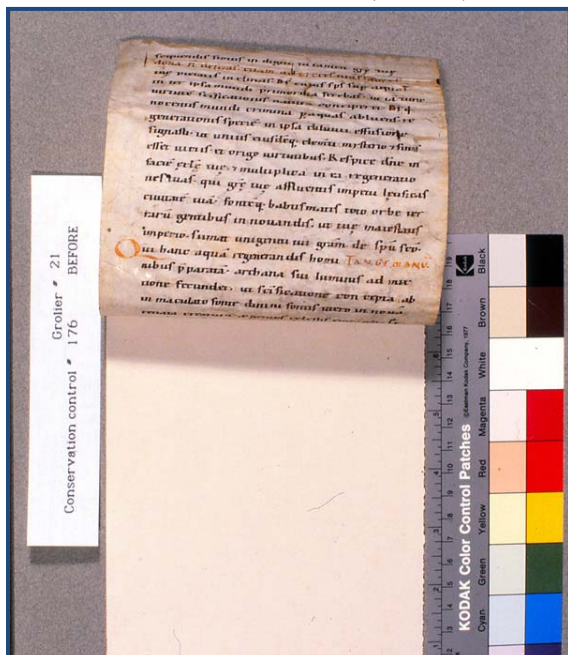 tue pietatis inclina. Ds cuius sps sup aquas
in ter ipsa mundi primordia ferebat, ut iam tunc
uirtute scificationis natura conciperet. Ds q
nocentis mundi crimina p aquas abluens, re
generationis specie in ipsa diluuii effusione
signasti, ut unius eiusdeq elementi mysterio & finis
esset uitiis & origo uirtutibus. Respice dne in
facie ecle tue & multiplica in ea regenerationes
tuas, qui gre tue affluentis impetu letificas
ciuitate tua, fonteq baptismatis toto orbe ter
raru gentibus innouandis, ut tue maiestatis
imperio, sumat unigeniti tui gram de spu sco.
Qui hanc aqua regenerandis homi TANGIS MANU.
nibus pparata, archana sui luminis ad mix
tione fecundet, ut scificatione concepta ab
in maculato
Grolier # 21
Conservation control # 176 BEFORE
Kodak
©Eastman Kodak Company, 1977
KODAK Color Control Patches
Black
Brown
White
Magenta
Red
Yellow
Green
Cyan